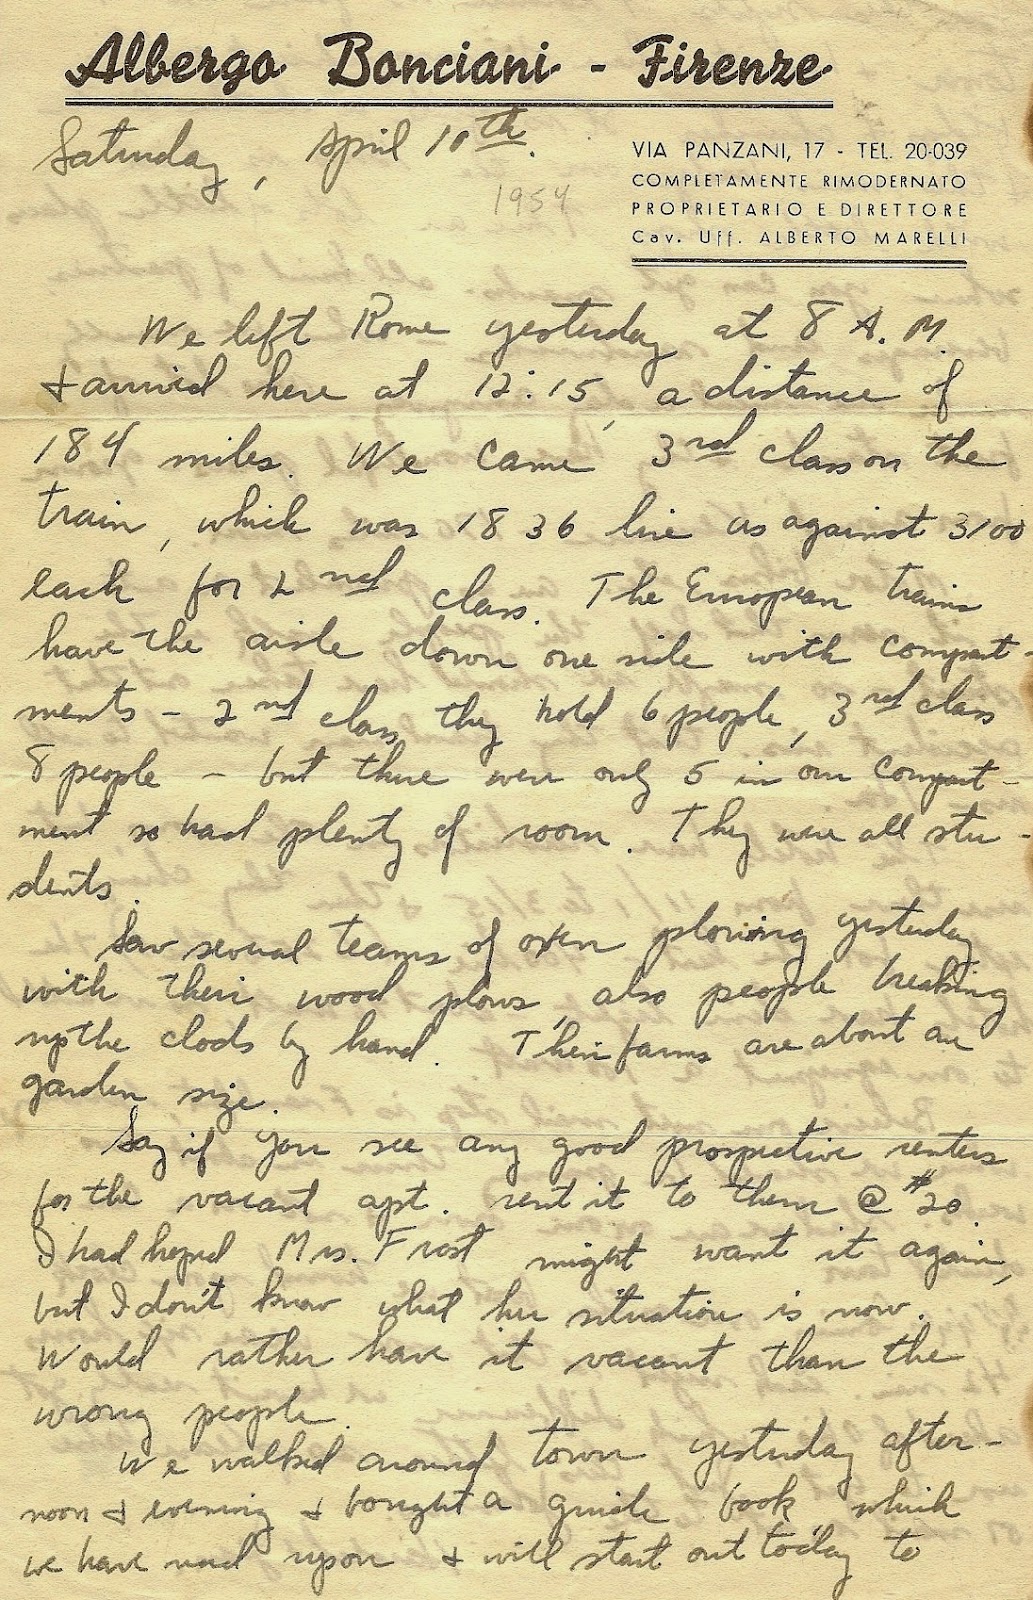 Albergo Bonciani - Firenze
Saturday, April 10th.
1954
VIA PANZANI, 17 - TEL. 20-039
COMPLETAMENTE RIMODERNATO
PROPRIETARIO E DIRETTORE
Cav. Uff. ALBERTO MARELLI
We left Rome yesterday at 8 A.M.
& arrived here at 12:15, a distance of
184 miles. We came 3rd class on the
train, which was 1836 lire as against 3100
each for 2nd class. The European trains
have the aisle down one side with compart-
ments - 2nd class they hold 6 people, 3rd class
8 people - but there were only 5 in our compart-
ment so had plenty of room. They were all stu-
dents.
Saw several teams of oxen plowing yesterday
with their wood plows, also people breaking
up the clods by hand. Their farms are about an
garden size.
Say if you see any good prospective renters
for the vacant apt. rent it to them @ $20.
I had hoped Mrs. Frost might want it again,
but I don't know what her situation is now.
Would rather have it vacant than the
wrong people.
We walked around town yesterday after-
noon & evening & bought a guide book which
we have read upon & will start out today to